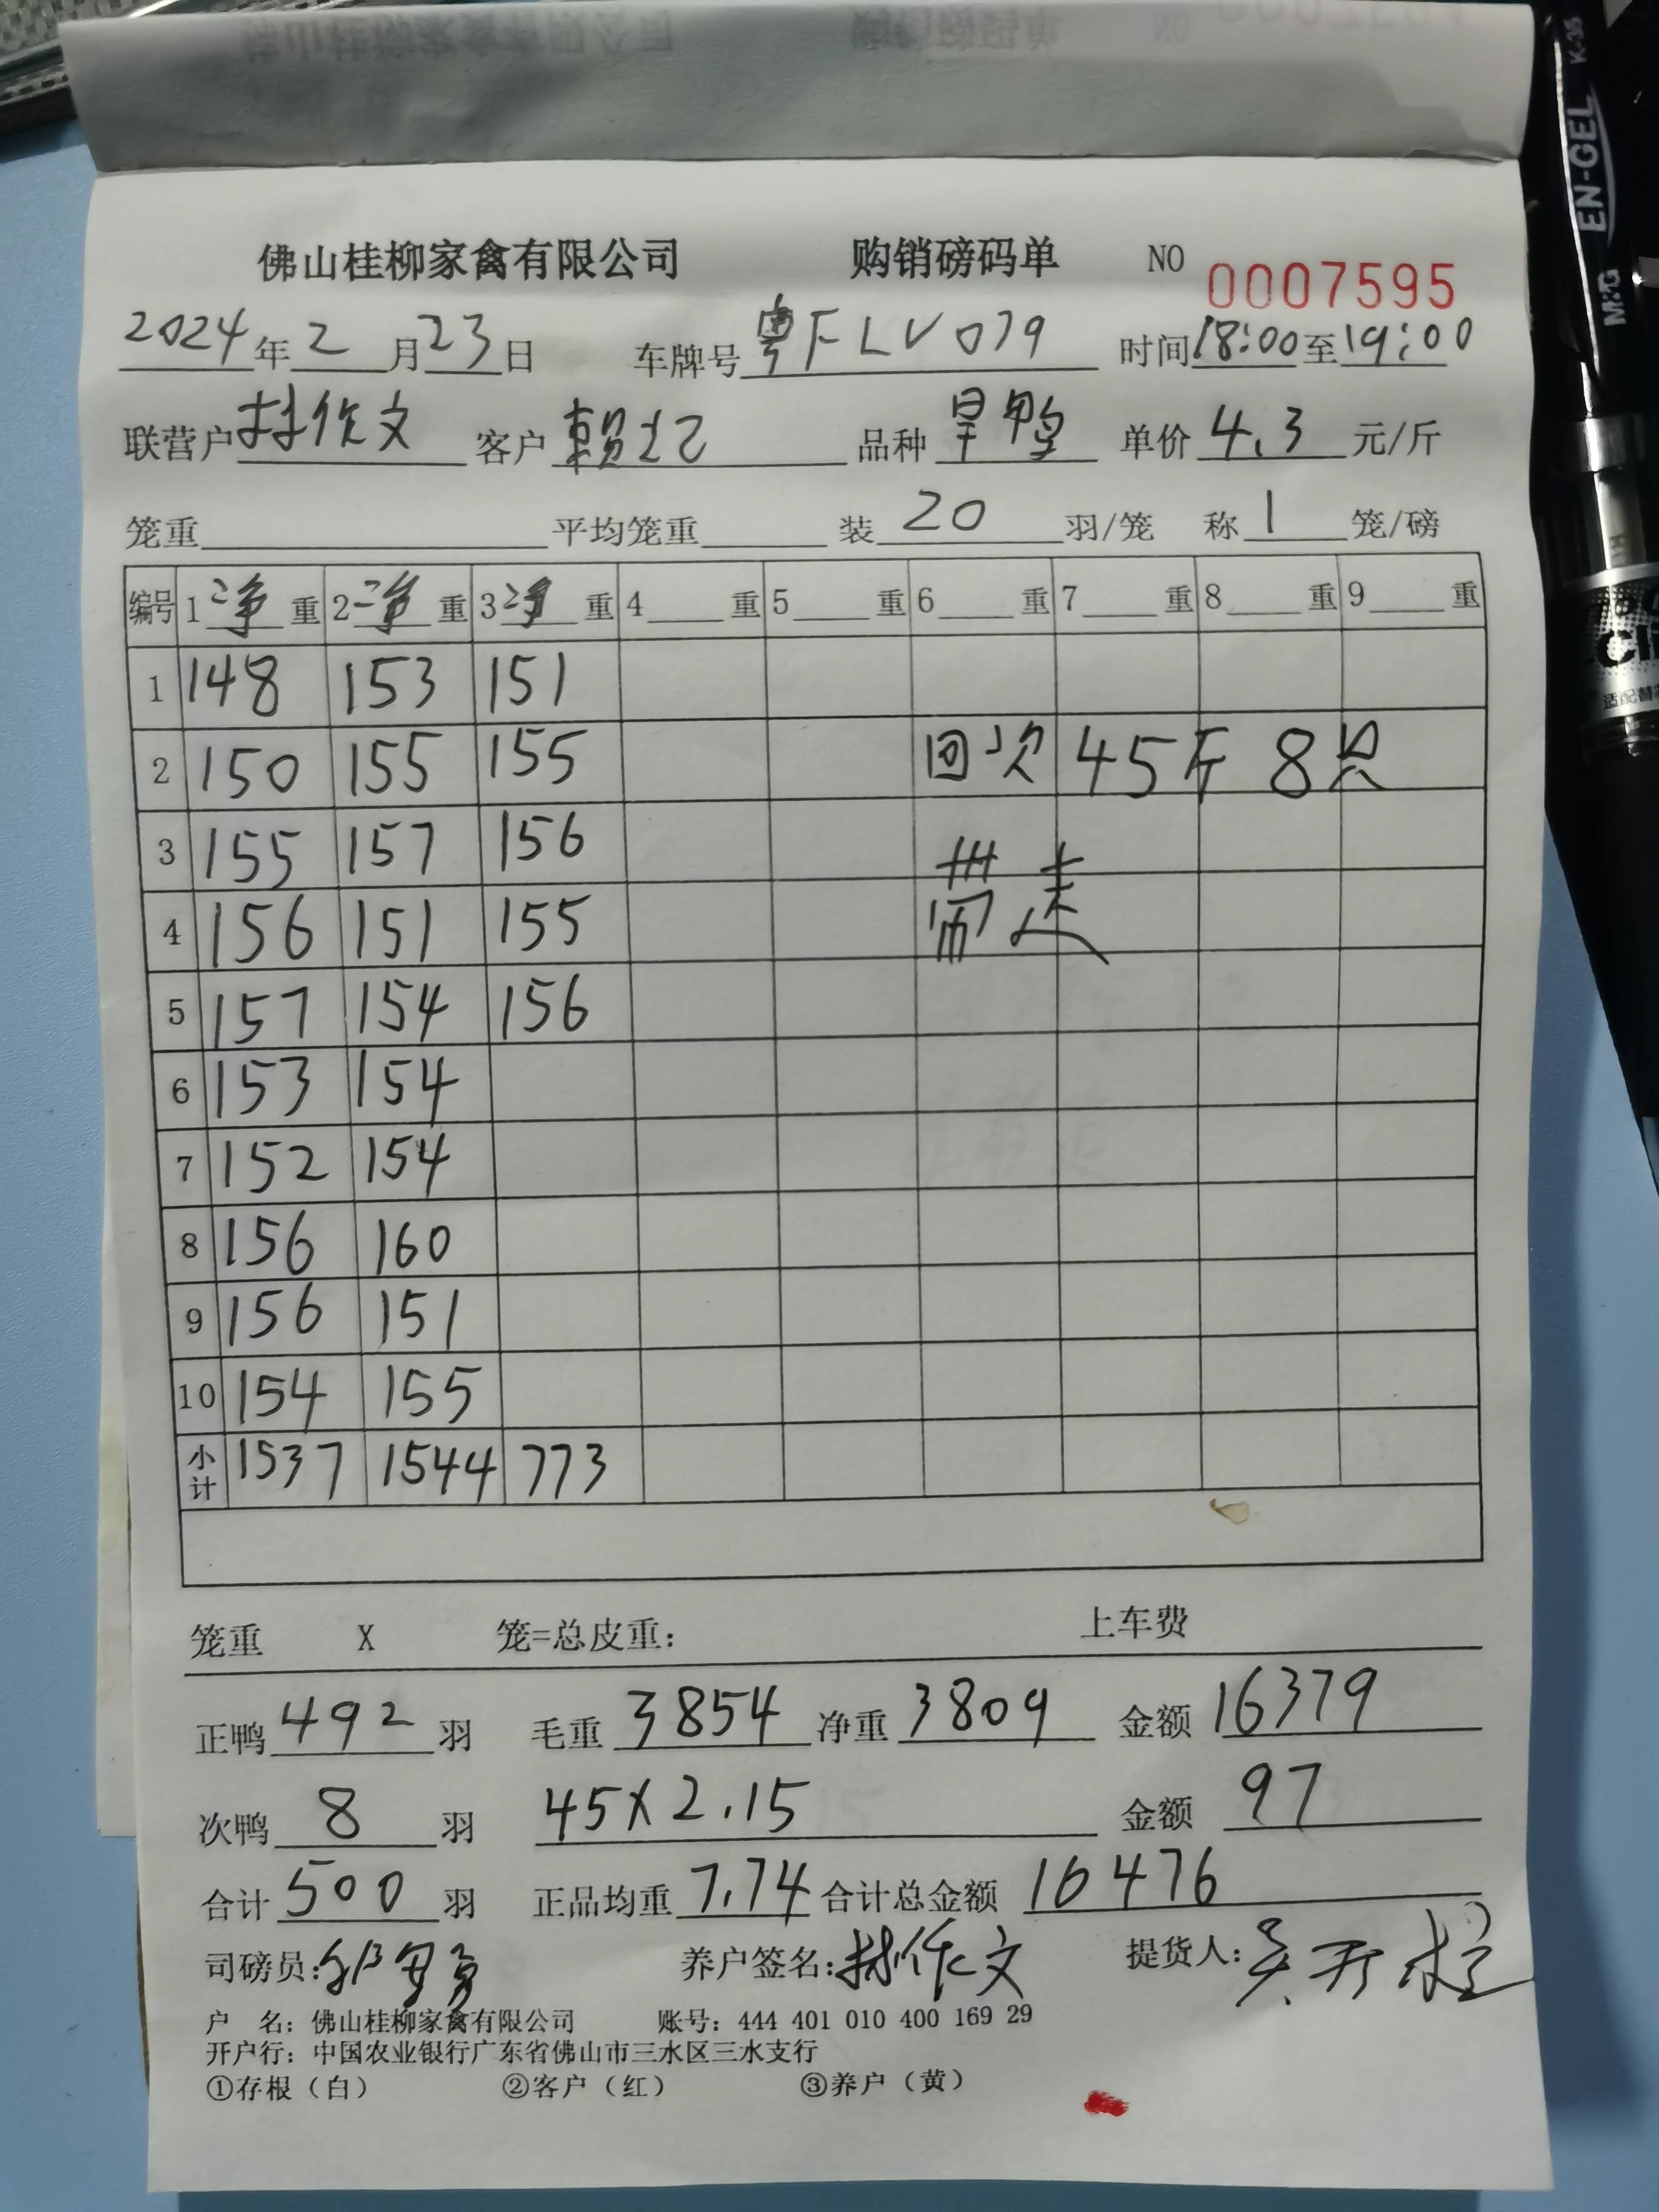 佛山桂柳家禽有限公司 购销磅码单 NO 0007595
2024年2月23日 车牌号粤FLV079 时间18:00至19:00
联营户林作文 客户賴 品种旱鸭 单价4.3元/斤
笼重 平均笼重 装20羽/笼 称1笼/磅
编号 1净重 2净重 3净重 4重 5重 6重 7重 8重 9重
1 148 153 151
2 150 155 155 回次 45斤 8只
3 155 157 156
4 156 151 155 带走
5 157 154 156
6 153 154
7 152 154
8 156 160
9 156 151
10 154 155
小计 1537 1544 773
笼重 X 笼=总皮重: 上车费
正鸭492羽 毛重3854 净重3809 金额16379
次鸭8羽 45X2.15 金额97
合计500羽 正品均重7.74 合计总金额16476
司磅员: 养户签名:林作文 提货人:
户 名: 佛山桂柳家禽有限公司 账号: 444 401 010 400 169 29
开户行: 中国农业银行广东省佛山市三水区三水支行
①存根(白) ②客户(红) ③养户(黄)
M&G EN-GEL K-35